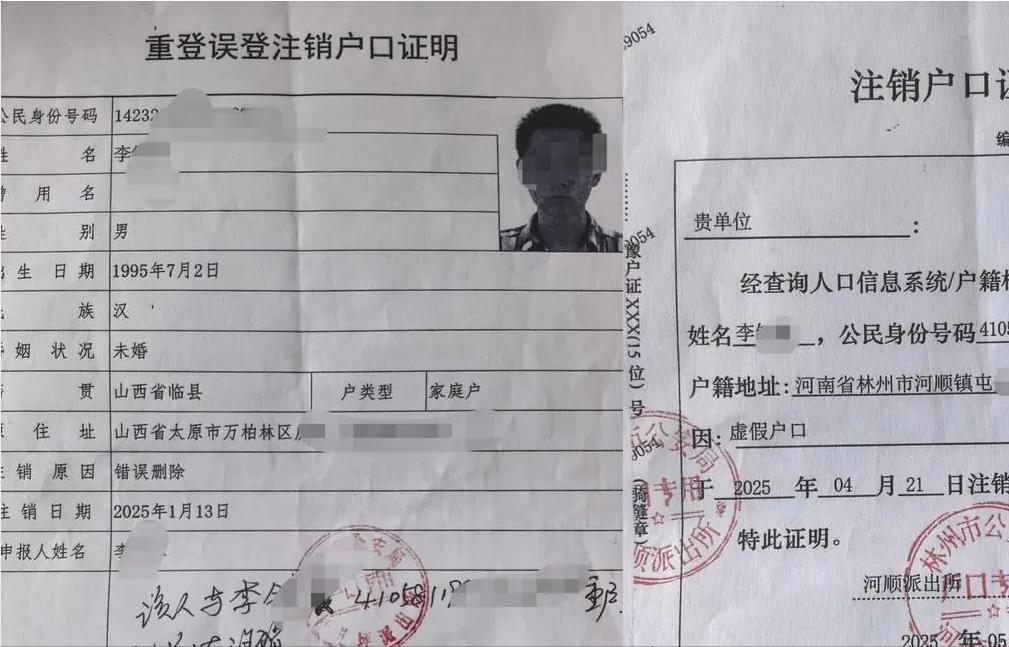 重登误登注销户口证明
公民身份号码 14232
姓 名 李
曾 用 名
性 别 男
出 生 日 期 1995年7月2日
民 族 汉
婚 姻 状 况 未婚
籍 贯 山西省临县 户类型 家庭户
原 住 址 山西省太原市万柏林区
注 销 原 因 错误删除
注 销 日 期 2025年1月13日
申报人姓名 李
该人与李 4105819 重
9054
注销户口证
编
贵单位 :
经查询人口信息系统/户籍
姓名李 ,公民身份号码4105
户籍地址:河南省林州市河顺镇屯
因:虚假户口
于 2025 年 04 月 21 日注销
特此证明。
河顺派出所
2025 年 05
9054
豫户证XXX(15位)号
9054
(骑缝章)
公安局
专用
顺派出所
林州市公
户口专